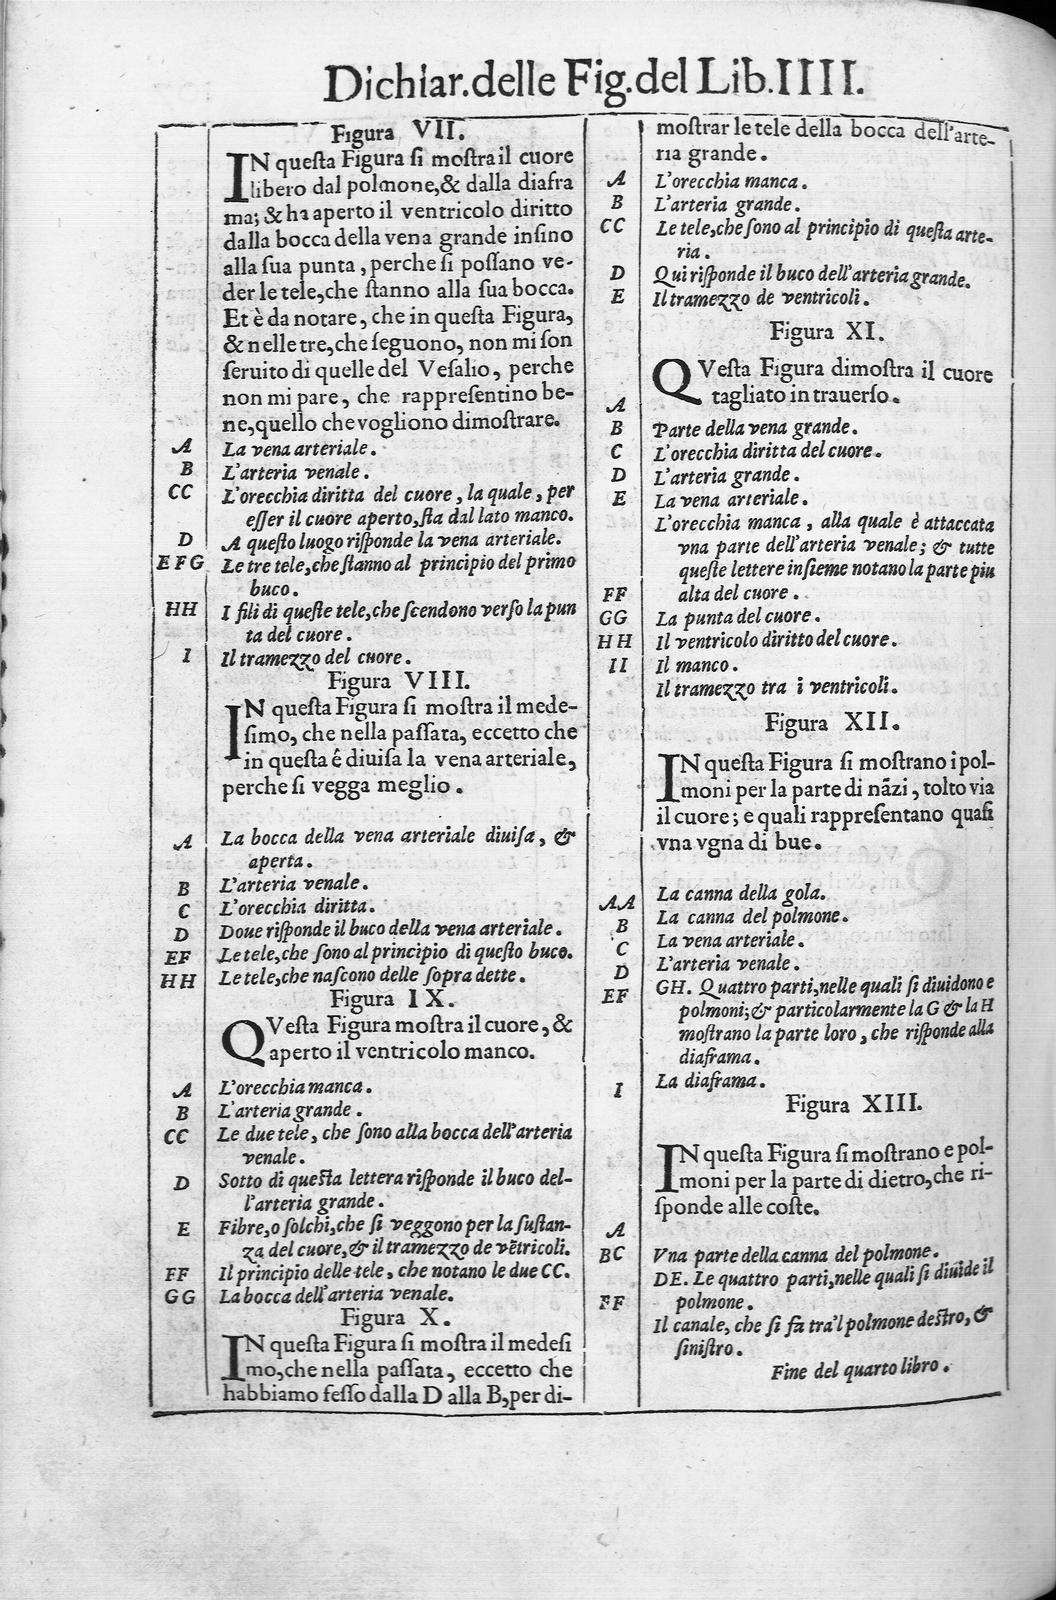 Dichiar. delle Fig. del Lib. IIII.
Figura VII.
IN queſta Figura ſi moſtra il cuore
libero dal polmone, & dalla diafra
ma; & ha aperto il ventricolo diritto
dalla bocca della vena grande inſino
alla ſua punta, perche ſi poſſano ve-
der le tele, che ſtanno alla ſua bocca.
Et è da notare, che in queſta Figura,
& nelle tre, che ſeguono, non mi ſon
ſeruito di quelle del Veſalio, perche
non mi pare, che rappreſentino be-
ne, quello che vogliono dimoſtrare.
A La vena arteriale.
B L'arteria venale.
CC L'orecchia diritta del cuore, la quale, per
eſſer il cuore aperto, ſta dal lato manco.
D A queſto luogo riſponde la vena arteriale.
EFG Le tre tele, che ſtanno al principio del primo
buco.
HH I fili di queſte tele, che ſcendono verſo la pun
ta del cuore.
I Il tramezzo del cuore.
Figura VIII.
IN queſta Figura ſi moſtra il mede-
ſimo, che nella paſſata, eccetto che
in queſta é diuiſa la vena arteriale,
perche ſi vegga meglio.
A La bocca della vena arteriale diuiſa, &
aperta.
B L'arteria venale.
C L'orecchia diritta.
D Doue riſponde il buco della vena arteriale.
EF Le tele, che ſono al principio di queſto buco.
HH Le tele, che naſcono delle ſopra dette.
Figura IX.
QVeſta Figura moſtra il cuore, &
aperto il ventricolo manco.
A L'orecchia manca.
B L'arteria grande.
CC Le due tele, che ſono alla bocca dell'arteria
venale.
D Sotto di queſta lettera riſponde il buco del-
l'arteria grande.
E Fibre, o ſolchi, che ſi veggono per la ſuſtan-
za del cuore, & il tramezzo de vẽtricoli.
FF Il principio delle tele, che notano le due CC.
GG La bocca dell'arteria venale.
Figura X.
IN queſta Figura ſi moſtra il medeſi
mo, che nella paſſata, eccetto che
habbiamo feſſo dalla D alla B, per di-
moſtrar le tele della bocca dell'arte-
ria grande.
A L'orecchia manca.
B L'arteria grande.
CC Le tele, che ſono al principio di queſta arte-
ria.
D Qui riſponde il buco dell'arteria grande.
E Il tramezzo de ventricoli.
Figura XI.
QVeſta Figura dimoſtra il cuore
tagliato in trauerſo.
A
B Parte della vena grande.
C L'orecchia diritta del cuore.
D L'arteria grande.
E La vena arteriale.
L'orecchia manca, alla quale è attaccata
vna parte dell'arteria venale; & tutte
queſte lettere inſieme notano la parte piu
FF alta del cuore.
GG La punta del cuore.
HH Il ventricolo diritto del cuore.
II Il manco.
Il tramezzo tra i ventricoli.
Figura XII.
IN queſta Figura ſi moſtrano i pol-
moni per la parte di nãzi, tolto via
il cuore; e quali rappreſentano quaſi
vna vgna di bue.
AA La canna della gola.
B La canna del polmone.
C La vena arteriale.
D L'arteria venale.
EF GH. Quattro parti, nelle quali ſi diuidono e
polmoni; & particolarmente la G & la H
moſtrano la parte loro, che riſponde alla
diaframa.
I La diaframa.
Figura XIII.
IN queſta Figura ſi moſtrano e pol-
moni per la parte di dietro, che ri-
ſponde alle coſte.
A
BC Vna parte della canna del polmone.
DE. Le quattro parti, nelle quali ſi diuide il
FF polmone.
Il canale, che ſi fa tra'l polmone deſtro, &
ſiniſtro.
Fine del quarto libro.